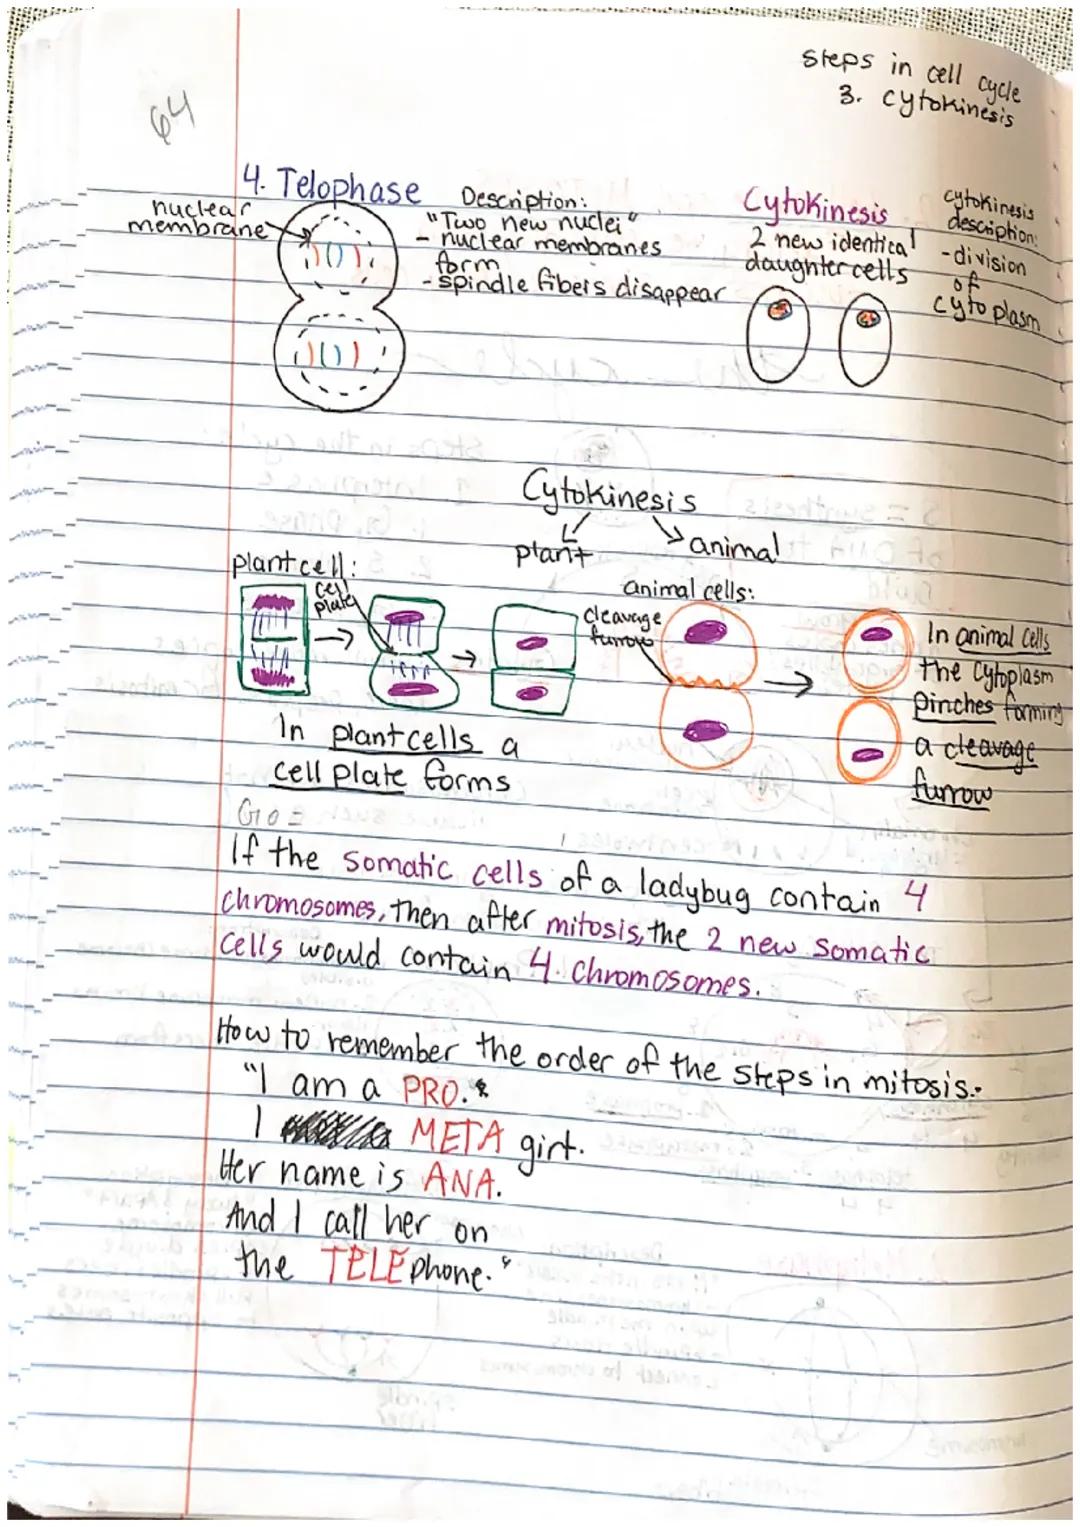 64
Steps in cell cycle
3. Cytokinesis
4. Telophase
nuclear
membrane
Description:
"Two new nuclei"
- nuclear membranes
form
- spindle fibers disappear
Cytokinesis
2 new identical
daughter cells
cytokinesis
description:
- division
of
cytoplasm
Cytokinesis
plant
animal
plant cell:
cell
plate
In plant cells a
cell plate forms
animal cells:
cleavage
furrow
In animal cells
the cytoplasm
pinches forming
a cleavage
furrow
G0 =
If the somatic cells of a ladybug contain 4
chromosomes, then after mitosis, the 2 new somatic
cells would contain 4 chromosomes.
How to remember the order of the steps in mitosis:
"I am a PRO.
I META girl.
Her name is ANA.
And I call her on
the TELEphone."